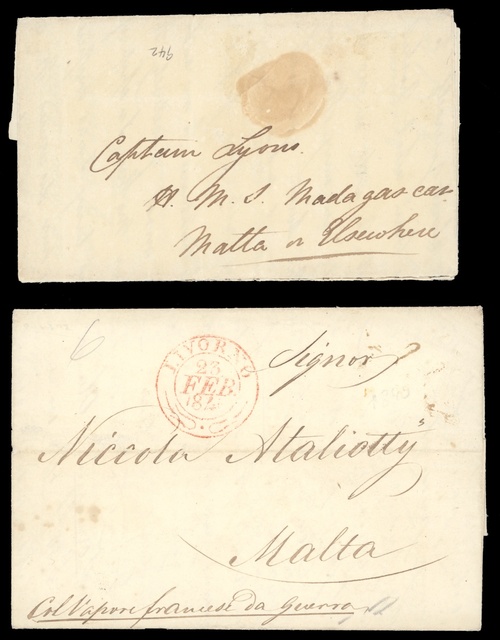 942
Captain Lyons.
H. M. S. Madagascar
Malta or Elsewhere
6
LIVORNO
23
FEB.
Signor
Niccola Ataliotty
Malta
Col Vapore francese da Guerra